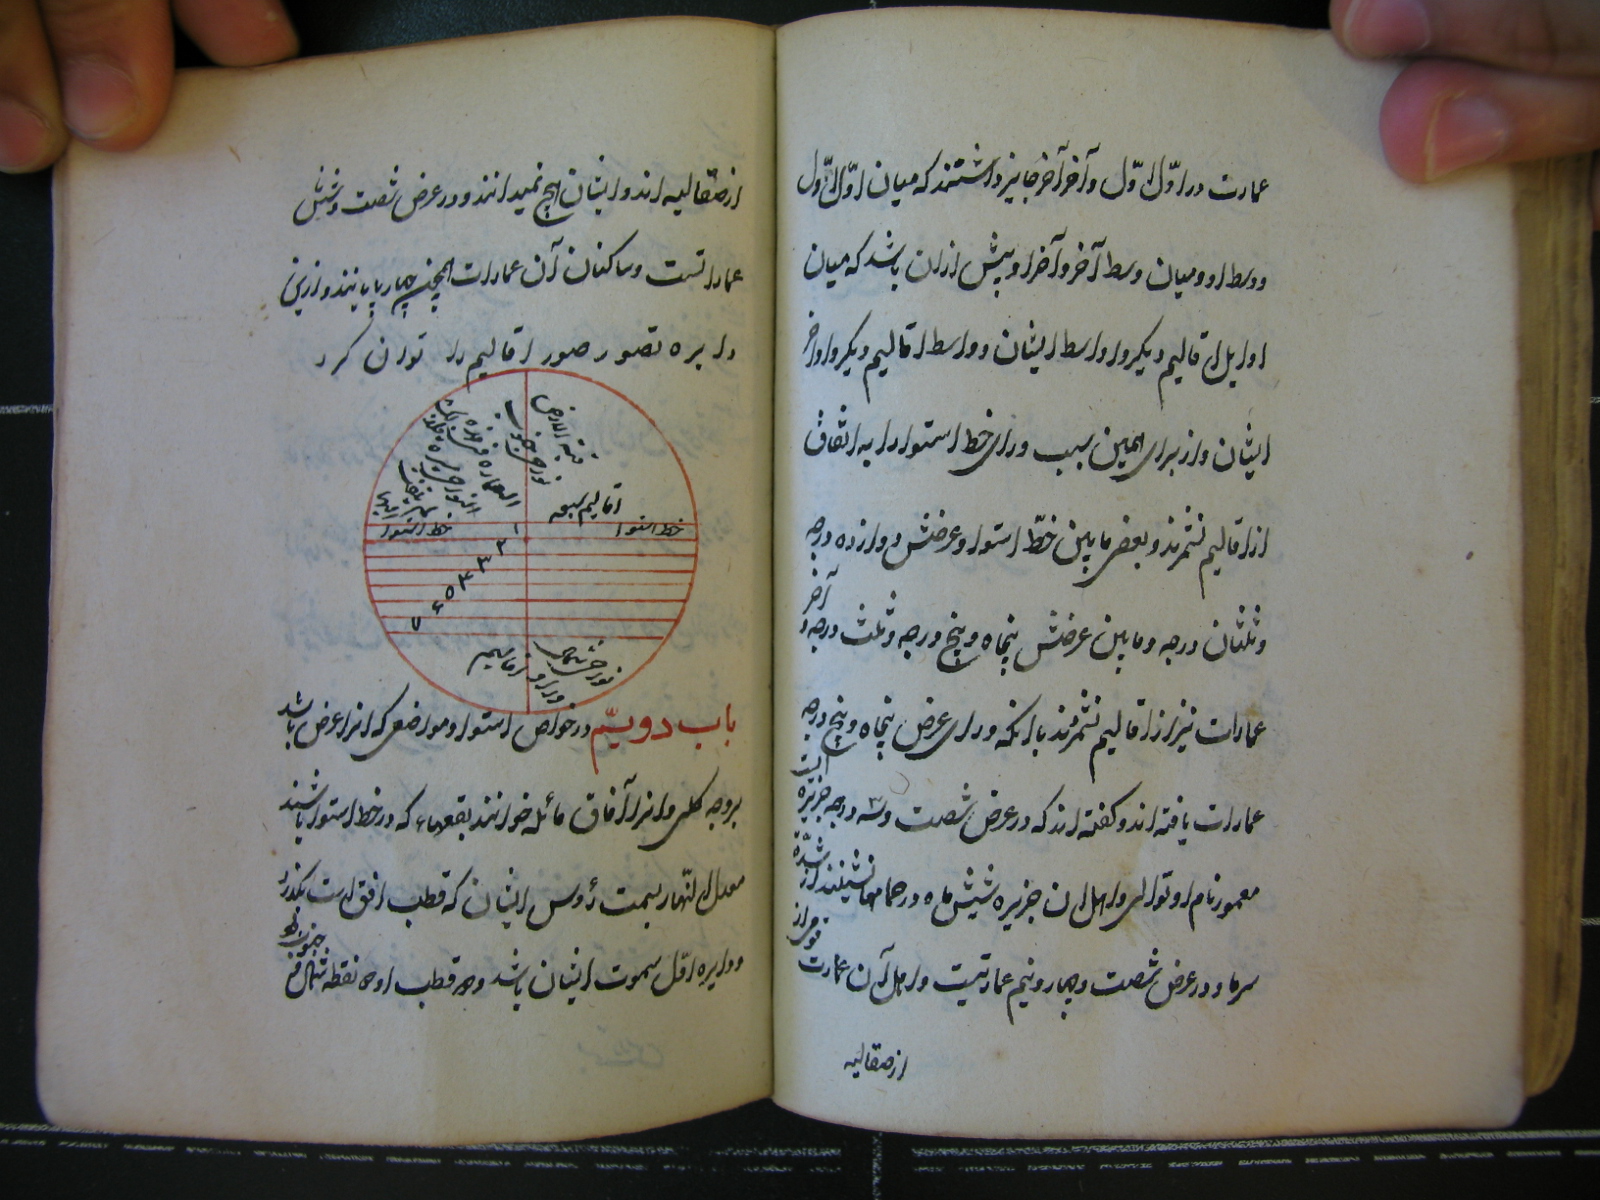 عمارت در اوّل اوّل و آخر آخر جایز داشتند که میان اوّل اوّل
و وسط او و میان وسط آخر و آخر او بیش ازان باشد که میان
اوایل اقالیم دیگر و اواسط ایشان و واسط اقالیم دیگر و اواخر
ایشان و از برای همین سبب ورای خط استوا را به اتفاق
از اقالیم نشمرند و بعضی مابین خطّ استوا و عرضش دوازده درجه
و ثلثان درجه و مابین عرضش پنجاه و پنج درجه و ثلث درجه و آخر
عمارات نیز از اقالیم نشمرند با انکه ورای عرض پنجاه و پنج درجه
عمارات یافته اند و گفته اند که در عرض شصت و سه درجه جزیره است
معمور نام او توالی و اهل ان جزیره شیش ماه در حمامها نشینند از شدّة
سرما و در عرض شصت و چهار و نیم عمارتیست و اهل آن عمارت قومی از
از صقالیه
از صقالیه اند و ایشان هیچ نمیدانند و در عرض شصت و شش
عماراتست و ساکنان آن عمارات همچون چهار پایانند و ازین
دایره تصور صور اقالیم را توان کرد
اقالیم سبعه
خط استوا
خط استوا
۱ ۲ ۳ ۴ ۵ ۶ ۷
باب دویّم در خواص استوا و مواضعی که انرا عرض باشد
بر وجه کلی و انرا آفاق مائله خوانند بقعهاء که در خط استوا باشند
معدل النّهار بسمت رٶس ایشان که قطب افق است بگذرد
و دایره اوّل سموت ایشان باشد و هر قطب او